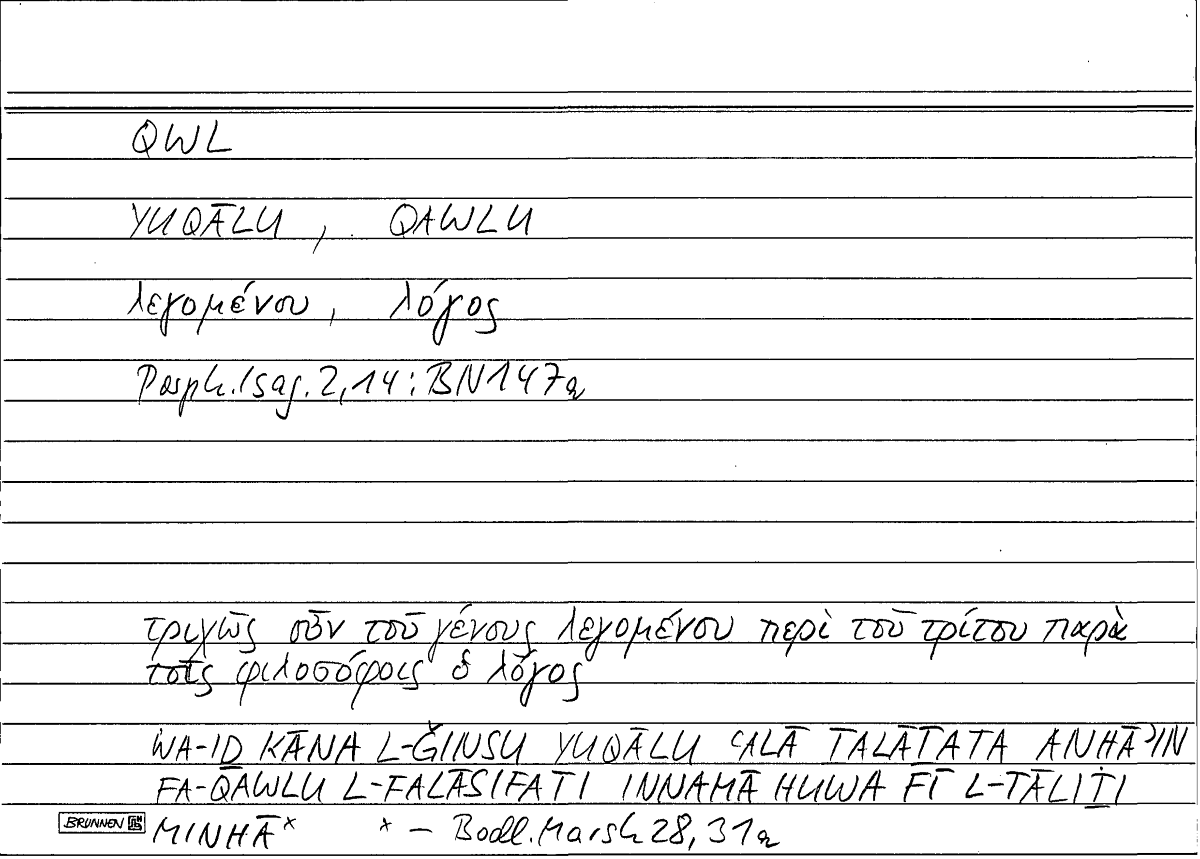 QWL
YUQĀLU, QAWLU
λεγομένου, λόγος
Porph.Isag.2,14:BN147a
τριχῶς οὖν τοῦ γένους λεγομένου περὶ τοῦ τρίτου παρὰ
τοῖς φιλοσόφοις ὁ λόγος
WA-IḎ KĀNA L-ǦINSU YUQĀLU ʿALĀ TALĀTATA ANHĀʾIN
FA-QAWLU L-FALĀSIFATI INNAMĀ HUWA FĪ L-TĀLIṮI
BRUNNEN MINHĀˣ x – Bodl.Marsh 28,31a